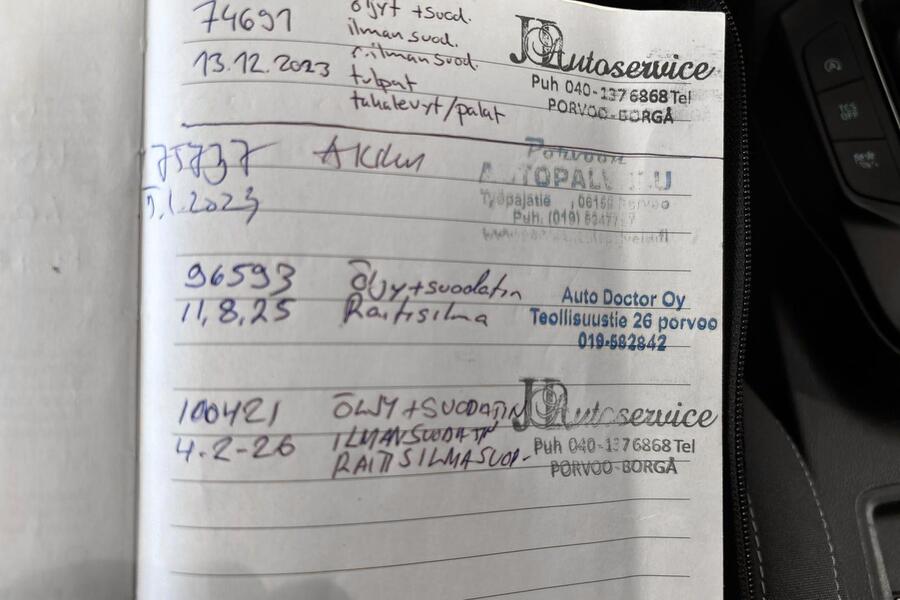 74691 öljyt + suod.
ilman suod.
13.12.2023 r.ilman suod.
tulpat
takalevyt/palat
JO Autoservice
Puh 040-1376868 Tel
PORVOO-BORGÅ
75737
Porvoon
AUTOPALVELU
Työpajatie
Puh. (019)
.1.2023
96593 Öljy + suodatin
11,8,25 Raitisilma
Auto Doctor Oy
Teollisuustie 26 porvoo
019-582842
100421 ÖLJY + SUODATIN
4.2-26 ILMANSUODATIN
RAITISILMASUOD-
JO Autoservice
Puh 040-1376868 Tel
PORVOO-BORGÅ
TCS
OFF